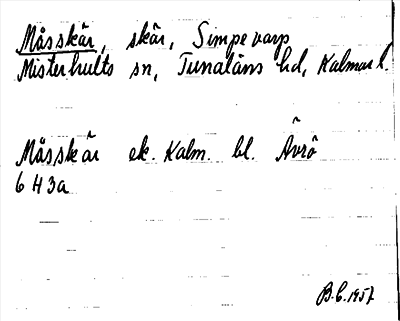 Måsskär, skär, Simpevarp
Misterhults sn, Tunaläns hd, Kalmar l.
Måsskär ek. Kalm. bl. Ävrö
6 H 3a
B.C. 1957